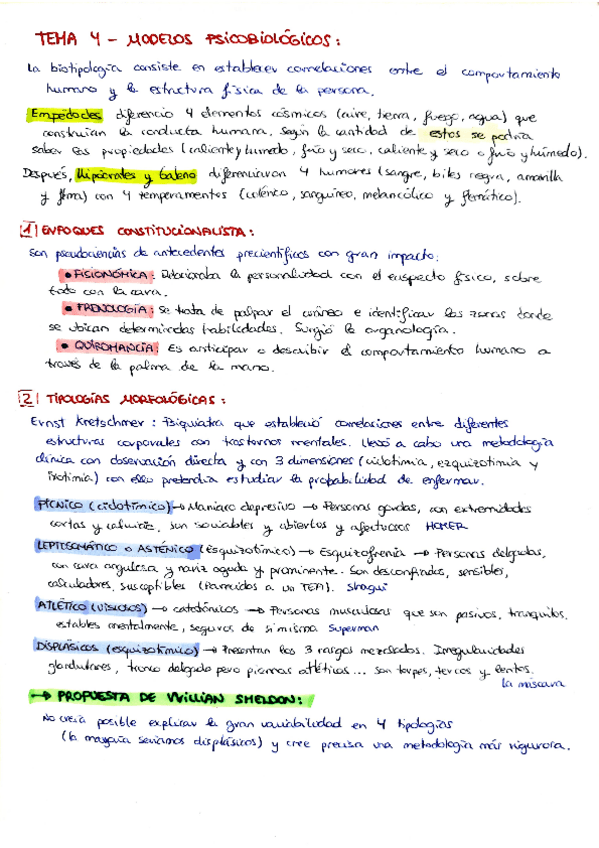 TEMA 4 - MODELOS PSICOBIOLÓGICOS:
La biotipología consiste en establecer correlaciones entre el comportamiento
humano y la estructura física de la persona.
Empédocles diferenció 4 elementos cósmicos (aire, tierra, fuego, agua) que
construían la conducta humana, según la cantidad de estos se podría
saber las propiedades (caliente y húmedo, frío y seco, caliente y seco o frío y húmedo).
Después, Hipócrates y Galeno diferenciaron 4 humores (sangre, bilis negra, amarilla
y flema) con 4 temperamentos (colérico, sanguíneo, melancólico y flemático).
1 ENFOQUES CONSTITUCIONALISTA:
Son pseudociencias de antecedentes precientíficos con gran impacto:
• FISIONÓMICA: Relacionaba la personalidad con el aspecto físico, sobre
todo con la cara.
• FRENOLOGÍA: Se trata de palpar el cráneo e identificar las zonas donde
se ubican determinadas habilidades. Surgió la organología.
• QUIROMANCIA: Es anticipar o describir el comportamiento humano a
través de la palma de la mano.
2 TIPOLOGÍAS MORFOLÓGICAS:
Ernst Kretschmer: Psiquiatra que estableció correlaciones entre diferentes
estructuras corporales con trastornos mentales. Llevó a cabo una metodología
clínica con observación directa y con 3 dimensiones (ciclotimia, ezquizotimia y
ixotimia) con ello pretendía estudiar la probabilidad de enfermar.
PÍCNICO (ciclotímico) → Maniaco depresivo → Personas gordas, con extremidades
cortas y calvicie, son sociables y abiertos y afectuosos HOMER
LEPTOSOMÁTICO o ASTÉNICO (esquizotímico) → Esquizofrenia → Personas delgadas,
con cara angulosa y nariz aguda y prominente. Son desconfiados, sensibles,
calculadores, susceptibles (Parecidos a un TEA). Shagui
ATLÉTICO (viscosos) → catatónicos → Personas musculosas que son pasivos, tranquilos,
estables mentalmente, seguros de si mismo Superman
DISPLÁSICOS (esquizotímico) → Presentan los 3 rasgos mezclados. Irregularidades
glandulares, tronco delgado pero piernas atléticas... son torpes, tercos y lentos.
La máscara
→ PROPUESTA DE WILLIAN SHELDON:
No creía posible explicar la gran variabilidad en 4 tipologías
(la mayoría seríamos displásicos) y cree precisa una metodología más rigurosa.